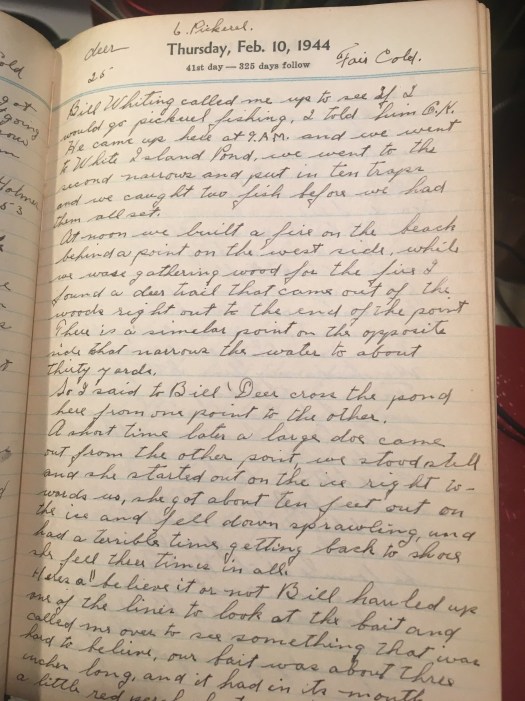 6. Pickerel.
deer
Thursday, Feb. 10, 1944
41st day — 325 days follow
Fair Cold.
25
Bill Whiting called me up to see If I
would go pickerel fishing, I told him O.K.
He came up here at 9.A.M. and we went
to White Island Pond, we went to the
second narrows and put in ten traps
and we caught two fish before we had
them all set.
At noon we built a fire on the beach
behind a point on the west side, while
we wase gathering wood for the fire I
found a deer trail that came out of the
woods right out to the end of the point
There is a simelar point on the opposite
side that narrows the water to about
thirty yards.
So I said to Bill "Deer cross the pond
here from one point to the other.
A short time later a large doe came
out from the other point, we stood still
and she started out on the ice right to-
wards us, she got about ten feet out on
the ice and fell down sprawling, and
had a terrible time getting back to shore
she fell three times in all.
Heres a "believe it or not Bill hauled up
one of the lines to look at the bait and
called me over to see something that was
hard to believe, our bait was about three
inches long, and it had in its mouth
a little red
old
going
Holmes
53